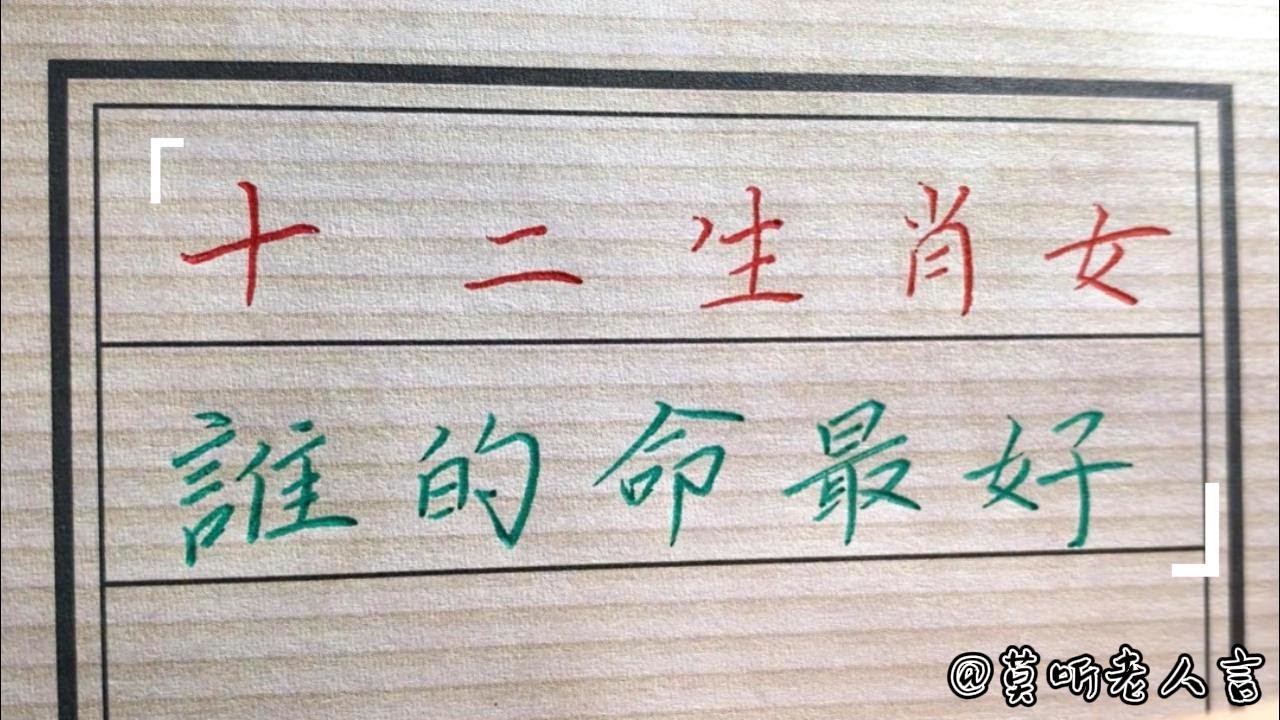 十二生肖女
誰的命最好
@莫听老人言